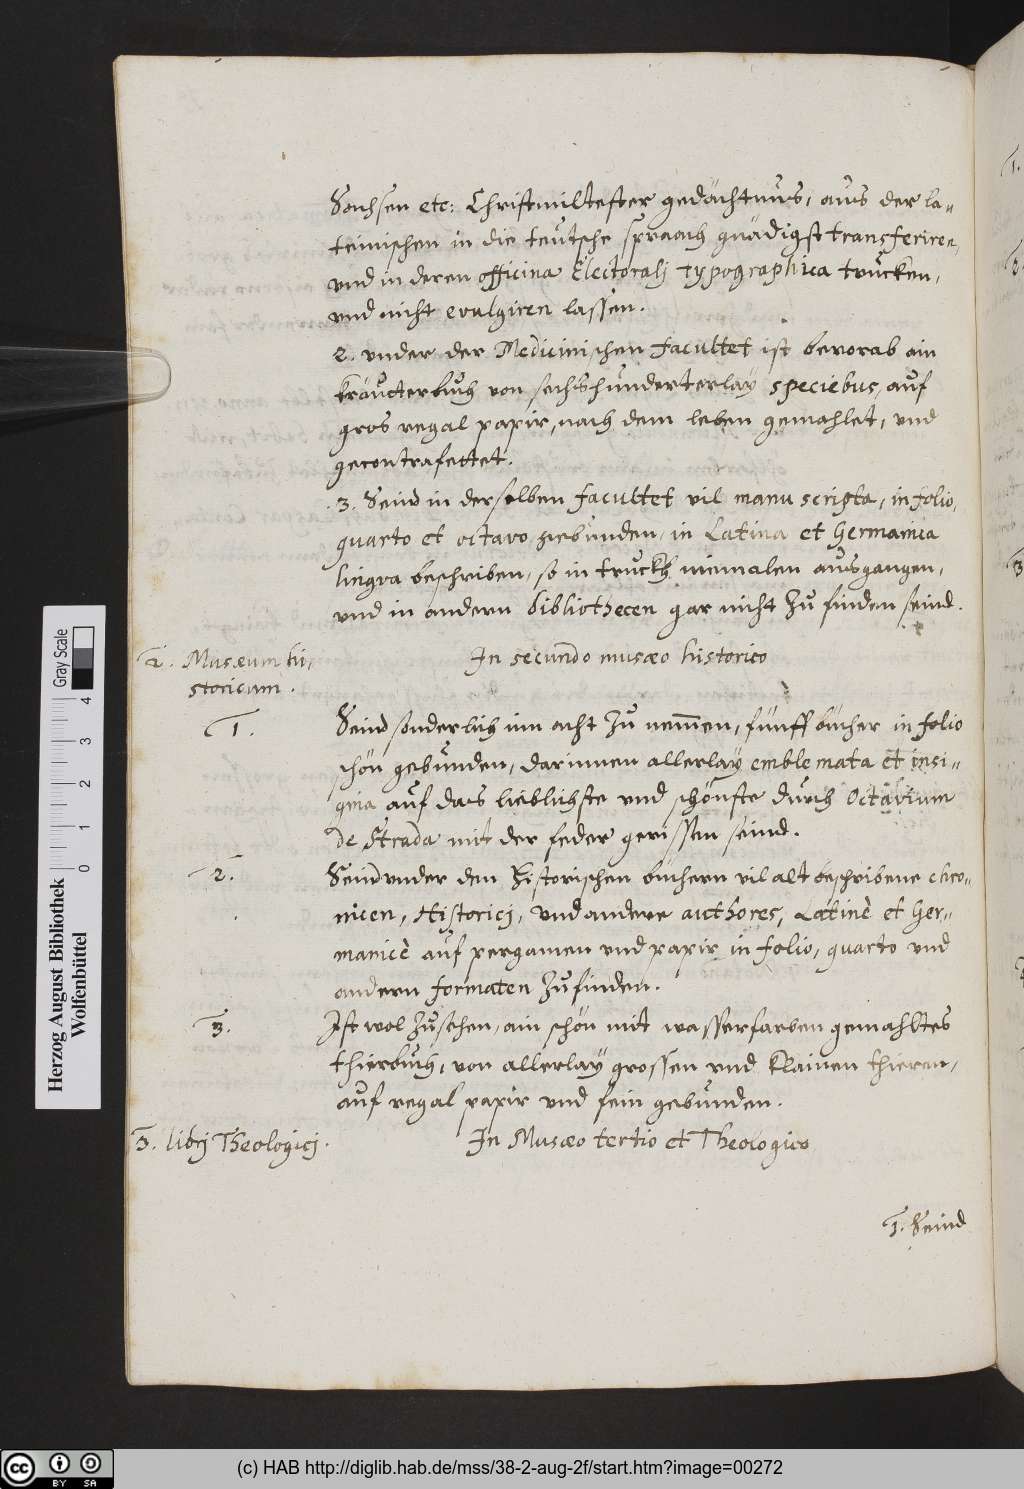 Sachsen etc: Christmiltester gedächtnus, aus der la-
teinischen in die teutsche spraach gnädigst transferiren,
vnd in deren officina Electoralj typographica trucken,
vnd nicht evulgiren lassen.
2. vnder der Medicinischen facultet ist bevorab ain
kräutterbuch von sechshunderterlaÿ speciebus, auf
gros regal papir, nach dem leben gemahlet, vnd
gecontrafettet.
3. Seind in derselben facultet vil manu scripta, in folio,
quarto et octavo gebunden, in Latina et Germanica
lingva beschriben, so in truckh niemalen ausgangen,
vnd in andern bibliothecen gar nicht zu finden seind.
2. Musæum hi-
storicum.
In secundo musæo historico
1.
Seind sonderlich inn acht zu nemmen, fünff bücher in folio
schön gebunden, darinnen allerlaÿ emblemata et insi-
gnia auf das lieblichste vnd schönste durch Octavium
de Strada mit der feder gerissen seind.
2.
Seind vnder den Historischen büchern vil alt beschribene chro-
nicen, Historicj, vnd andere authores, Latinè et Ger-
manicè auf pergamen vnd papir in folio, quarto vnd
andern formaten zufinden.
3.
Ist wol zusehen, ain schön mit wasserfarben gemahltes
thierbuch, von allerlaÿ grossen vnd klainen thieren,
auf regal papir vnd fein gebunden.
3. librj Theologicj.
In Musæo tertio et Theologico
1. Seind
Herzog August Bibliothek
Wolfenbüttel
Gray Scale
0 1 2 3 4
CC BY SA
(c) HAB http://diglib.hab.de/mss/38-2-aug-2f/start.htm?image=00272